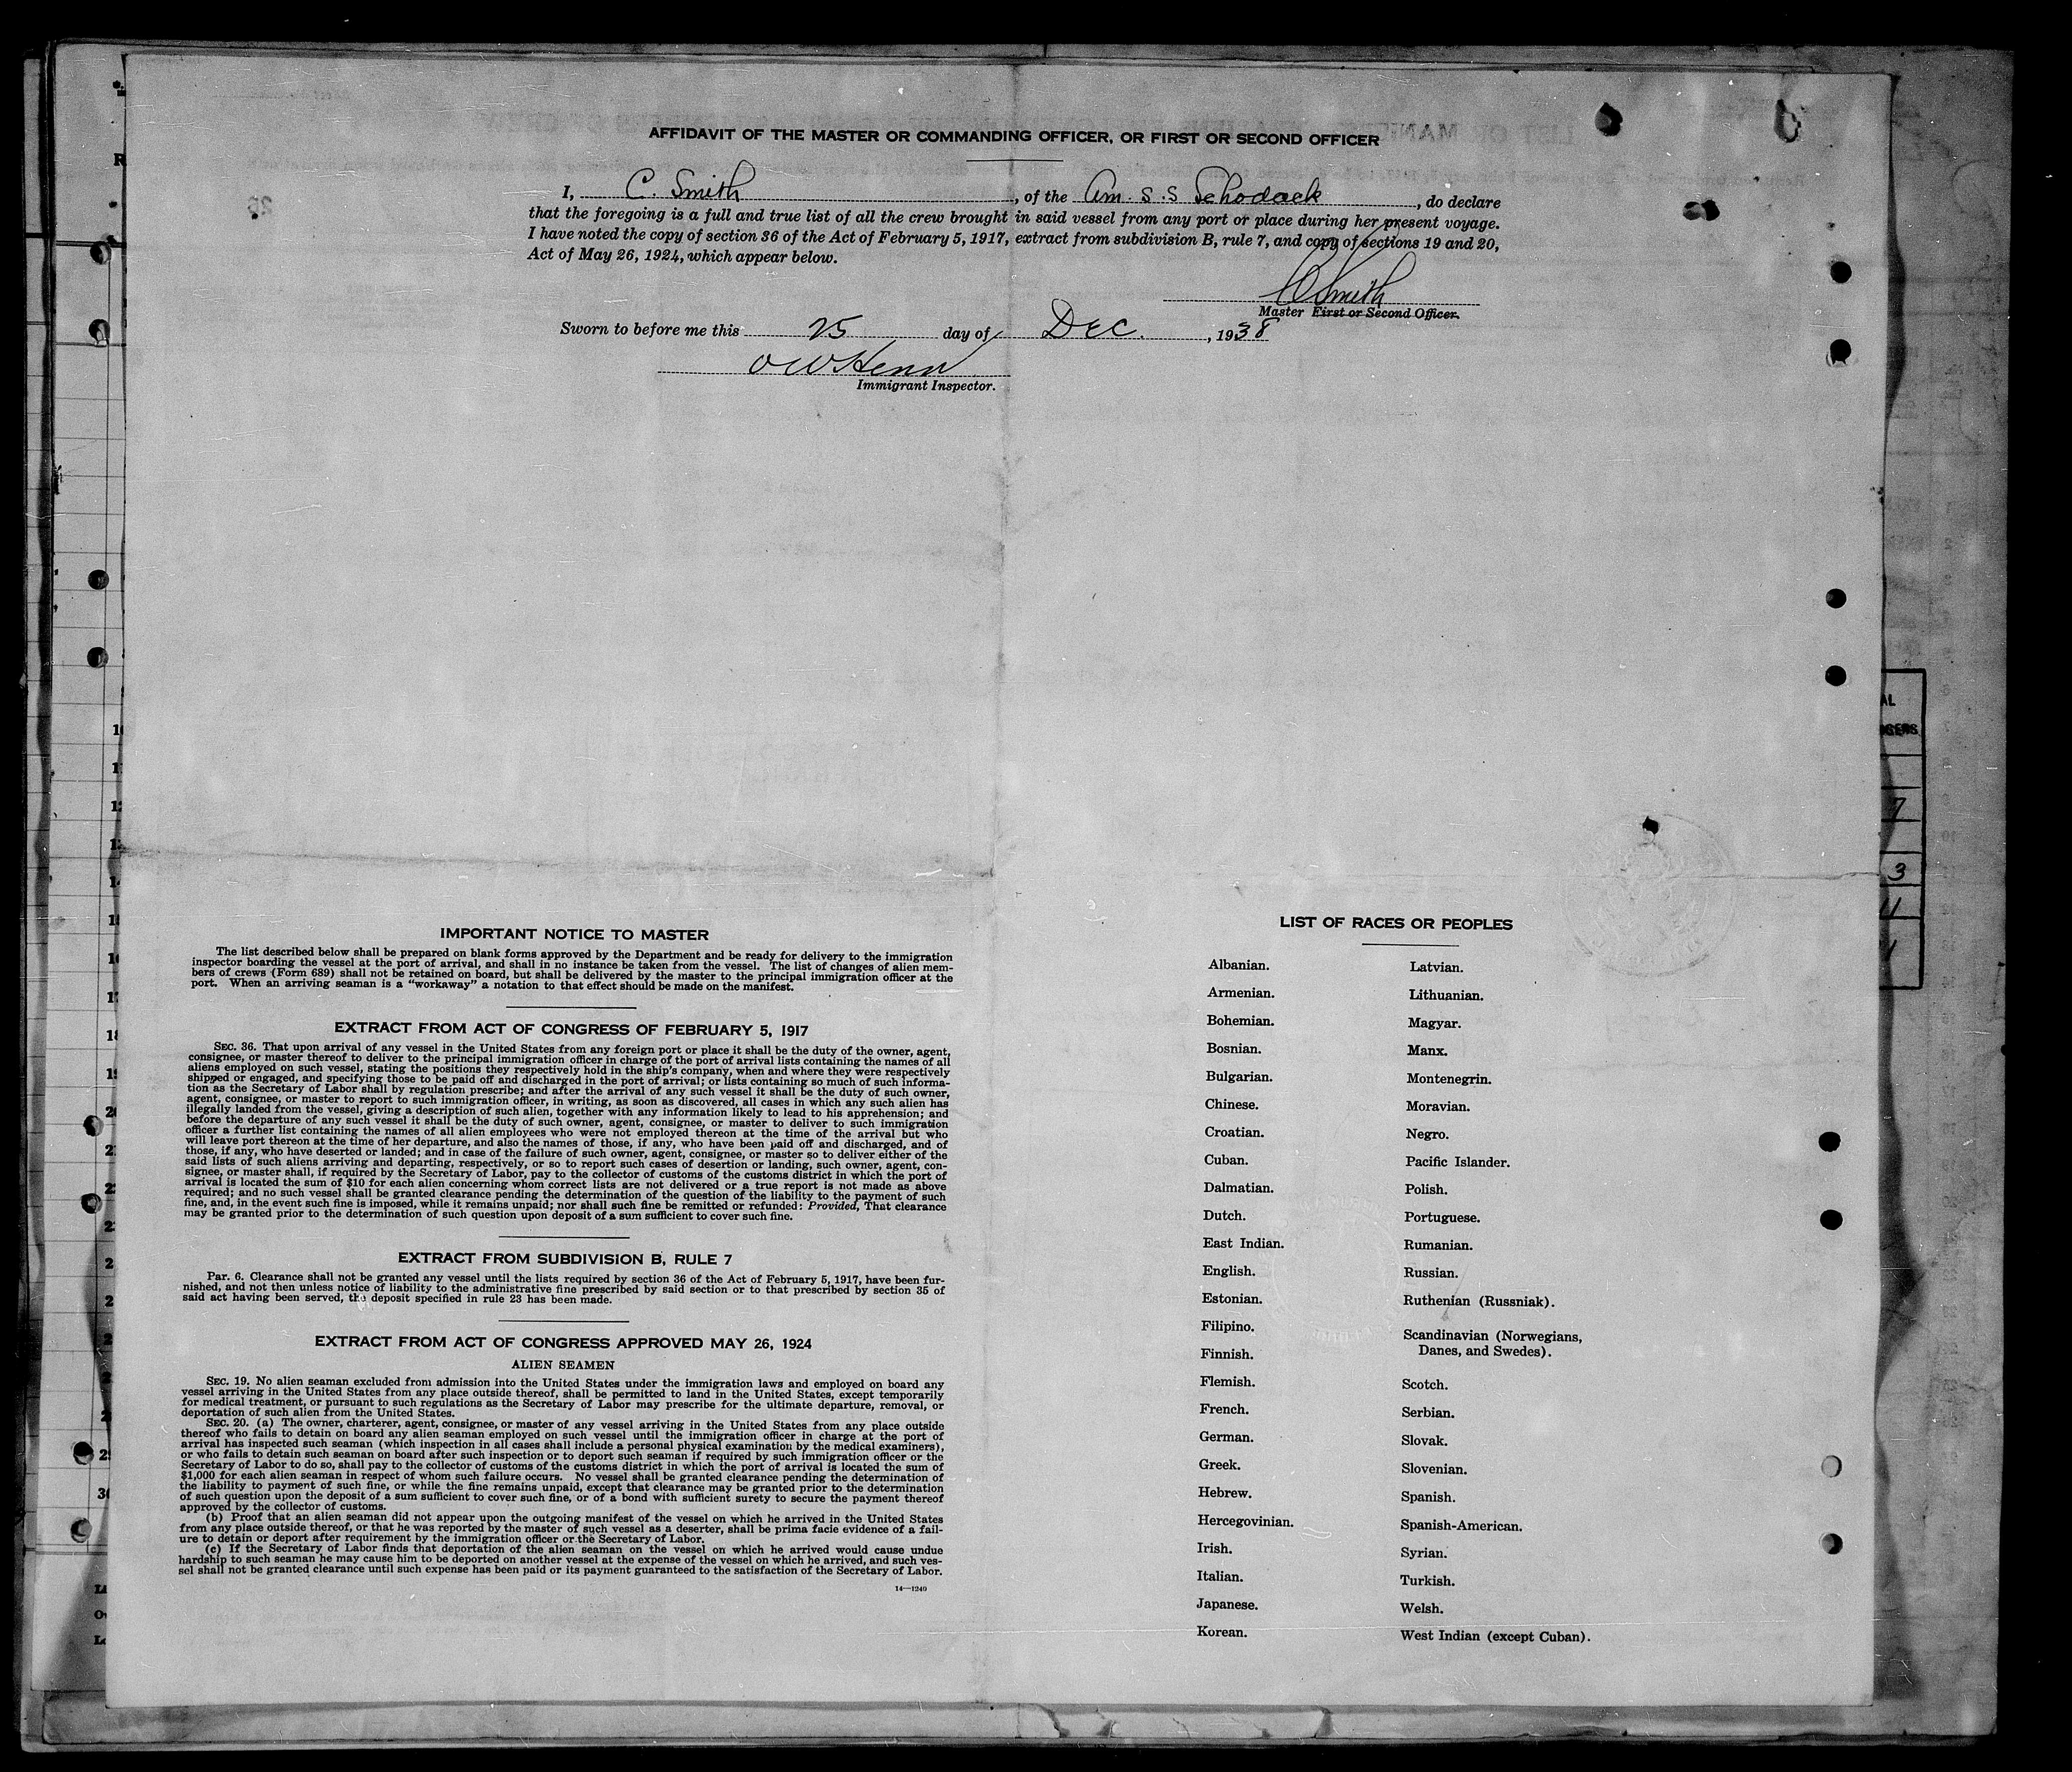 AFFIDAVIT OF THE MASTER OR COMMANDING OFFICER, OR FIRST OR SECOND OFFICER
I, C. Smith, of the Am. S.S Schodack, do declare
that the foregoing is a full and true list of all the crew brought in said vessel from any port or place during her present voyage.
I have noted the copy of section 36 of the Act of February 5, 1917, extract from subdivision B, rule 7, and copy of sections 19 and 20,
Act of May 26, 1924, which appear below.
C Smith
Master First or Second Officer.
Sworn to before me this 25 day of Dec., 1938
O W Henn
Immigrant Inspector.
IMPORTANT NOTICE TO MASTER
The list described below shall be prepared on blank forms approved by the Department and be ready for delivery to the immigration
inspector boarding the vessel at the port of arrival, and shall in no instance be taken from the vessel. The list of changes of alien mem-
bers of crews (Form 689) shall not be retained on board, but shall be delivered by the master to the principal immigration officer at the
port. When an arriving seaman is a "workaway" a notation to that effect should be made on the manifest.
EXTRACT FROM ACT OF CONGRESS OF FEBRUARY 5, 1917
SEC. 36. That upon arrival of any vessel in the United States from any foreign port or place it shall be the duty of the owner, agent,
consignee, or master thereof to deliver to the principal immigration officer in charge of the port of arrival lists containing the names of all
aliens employed on such vessel, stating the positions they respectively hold in the ship's company, when and where they were respectively
shipped or engaged, and specifying those to be paid off and discharged in the port of arrival; or lists containing so much of such informa-
tion as the Secretary of Labor shall by regulation prescribe; and after the arrival of any such vessel it shall be the duty of such owner,
agent, consignee, or master to report to such immigration officer, in writing, as soon as discovered, all cases in which any such alien has
illegally landed from the vessel, giving a description of such alien, together with any information likely to lead to his apprehension; and
before the departure of any such vessel it shall be the duty of such owner, agent, consignee, or master to deliver to such immigration
officer a further list containing the names of all alien employees who were not employed thereon at the time of the arrival but who
will leave port thereon at the time of her departure, and also the names of those, if any, who have been paid off and discharged, and of
those, if any, who have deserted or landed; and in case of the failure of such owner, agent, consignee, or master so to deliver either of the
said lists of such aliens arriving and departing, respectively, or so to report such cases of desertion or landing, such owner, agent, con-
signee, or master shall, if required by the Secretary of Labor, pay to the collector of customs of the customs district in which the port of
arrival is located the sum of $10 for each alien concerning whom correct lists are not delivered or a true report is not made as above
required; and no such vessel shall be granted clearance pending the determination of the question of the liability to the payment of such
fine, and, in the event such fine is imposed, while it remains unpaid; nor shall such fine be remitted or refunded: Provided, That clearance
may be granted prior to the determination of such question upon deposit of a sum sufficient to cover such fine.
EXTRACT FROM SUBDIVISION B, RULE 7
Par. 6. Clearance shall not be granted any vessel until the lists required by section 36 of the Act of February 5, 1917, have been fur-
nished, and not then unless notice of liability to the administrative fine prescribed by said section or to that prescribed by section 35 of
said act having been served, the deposit specified in rule 23 has been made.
EXTRACT FROM ACT OF CONGRESS APPROVED MAY 26, 1924
ALIEN SEAMEN
SEC. 19. No alien seaman excluded from admission into the United States under the immigration laws and employed on board any
vessel arriving in the United States from any place outside thereof, shall be permitted to land in the United States, except temporarily
for medical treatment, or pursuant to such regulations as the Secretary of Labor may prescribe for the ultimate departure, removal, or
deportation of such alien from the United States.
SEC. 20. (a) The owner, charterer, agent, consignee, or master of any vessel arriving in the United States from any place outside
thereof who fails to detain on board any alien seaman employed on such vessel until the immigration officer in charge at the port of
arrival has inspected such seaman (which inspection in all cases shall include a personal physical examination by the medical examiners),
or who fails to detain such seaman on board after such inspection or to deport such seaman if required by such immigration officer or the
Secretary of Labor to do so, shall pay to the collector of customs of the customs district in which the port of arrival is located the sum of
$1,000 for each alien seaman in respect of whom such failure occurs. No vessel shall be granted clearance pending the determination of
the liability to payment of such fine, or while the fine remains unpaid, except that clearance may be granted prior to the determination
of such question upon the deposit of a sum sufficient to cover such fine, or of a bond with sufficient surety to secure the payment thereof
approved by the collector of customs.
(b) Proof that an alien seaman did not appear upon the outgoing manifest of the vessel on which he arrived in the United States
from any place outside thereof, or that he was reported by the master of such vessel as a deserter, shall be prima facie evidence of a fail-
ure to detain or deport after requirement by the immigration officer or the Secretary of Labor.
(c) If the Secretary of Labor finds that deportation of the alien seaman on the vessel on which he arrived would cause undue
hardship to such seaman he may cause him to be deported on another vessel at the expense of the vessel on which he arrived, and such ves-
sel shall not be granted clearance until such expense has been paid or its payment guaranteed to the satisfaction of the Secretary of Labor.
14—1240
LIST OF RACES OR PEOPLES
Albanian.
Armenian.
Bohemian.
Bosnian.
Bulgarian.
Chinese.
Croatian.
Cuban.
Dalmatian.
Dutch.
East Indian.
English.
Estonian.
Filipino.
Finnish.
Flemish.
French.
German.
Greek.
Hebrew.
Hercegovinian.
Irish.
Italian.
Japanese.
Korean.
Latvian.
Lithuanian.
Magyar.
Manx.
Montenegrin.
Moravian.
Negro.
Pacific Islander.
Polish.
Portuguese.
Rumanian.
Russian.
Ruthenian (Russniak).
Scandinavian (Norwegians,
Danes, and Swedes).
Scotch.
Serbian.
Slovak.
Slovenian.
Spanish.
Spanish-American.
Syrian.
Turkish.
Welsh.
West Indian (except Cuban).